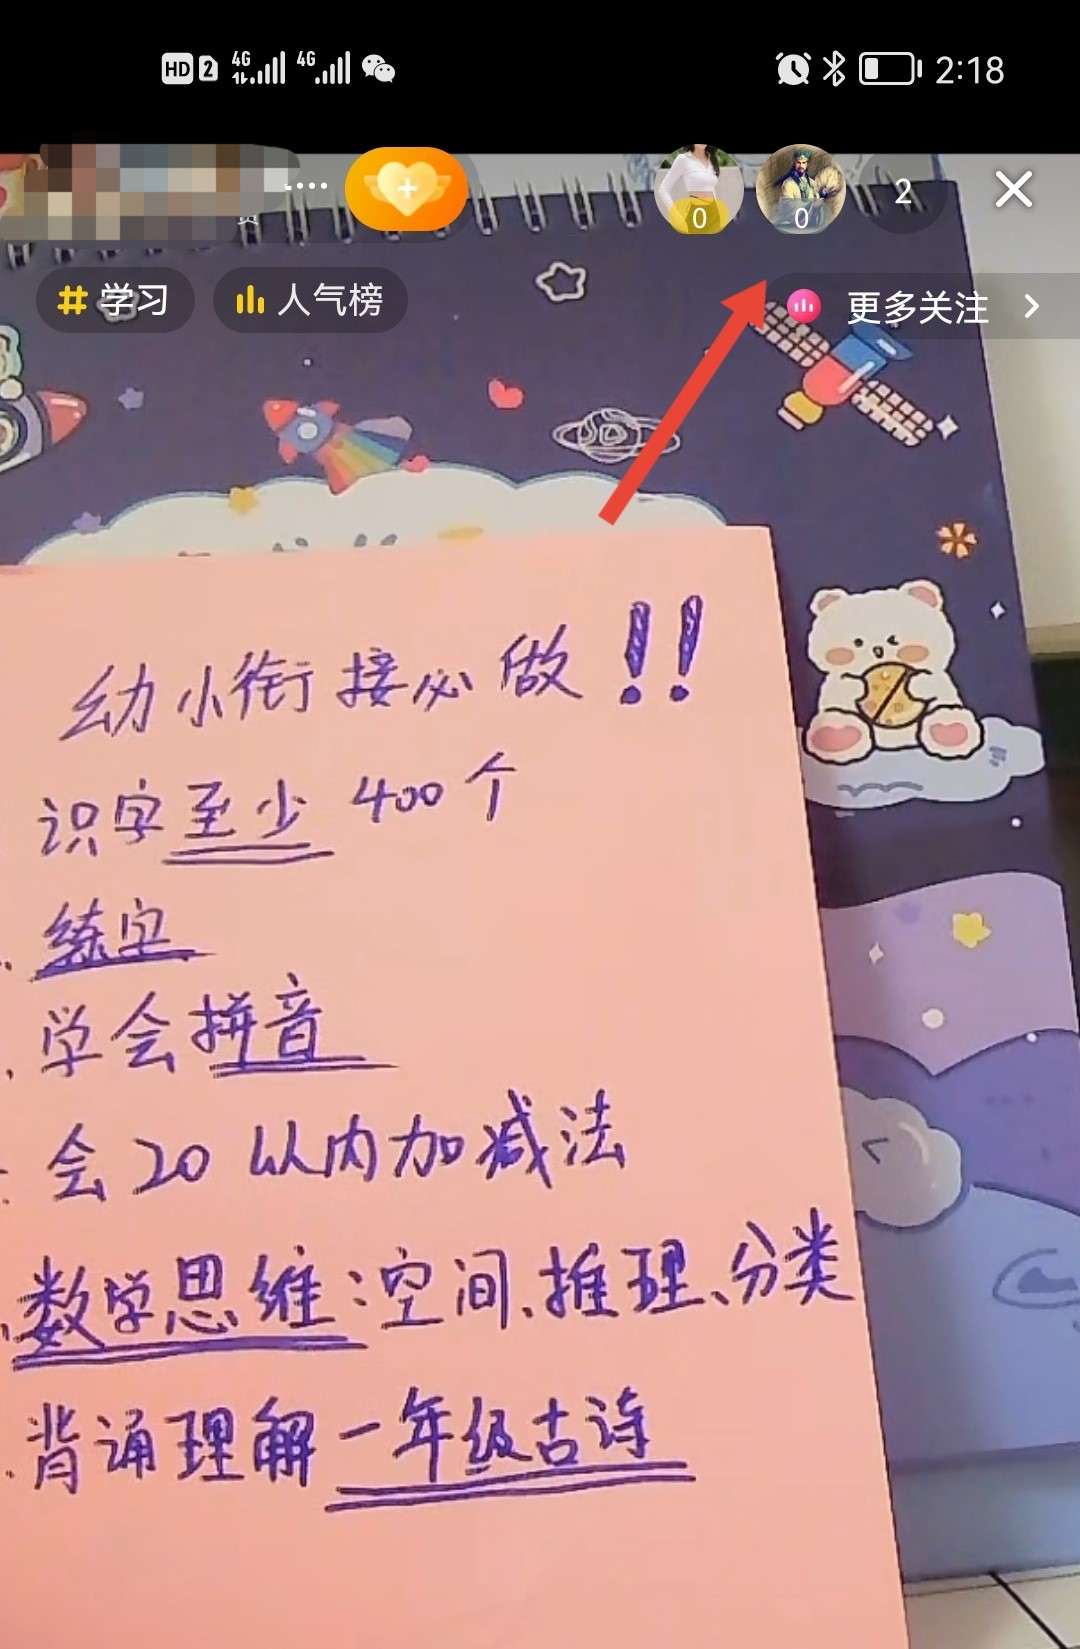 HD 2 4G 4G 2:18
0 0 2
# 学习 人气榜 更多关注
幼小衔接必做!!
识字至少400个
练字
学会拼音
会20以内加减法
数学思维:空间、推理、分类
背诵理解一年级古诗